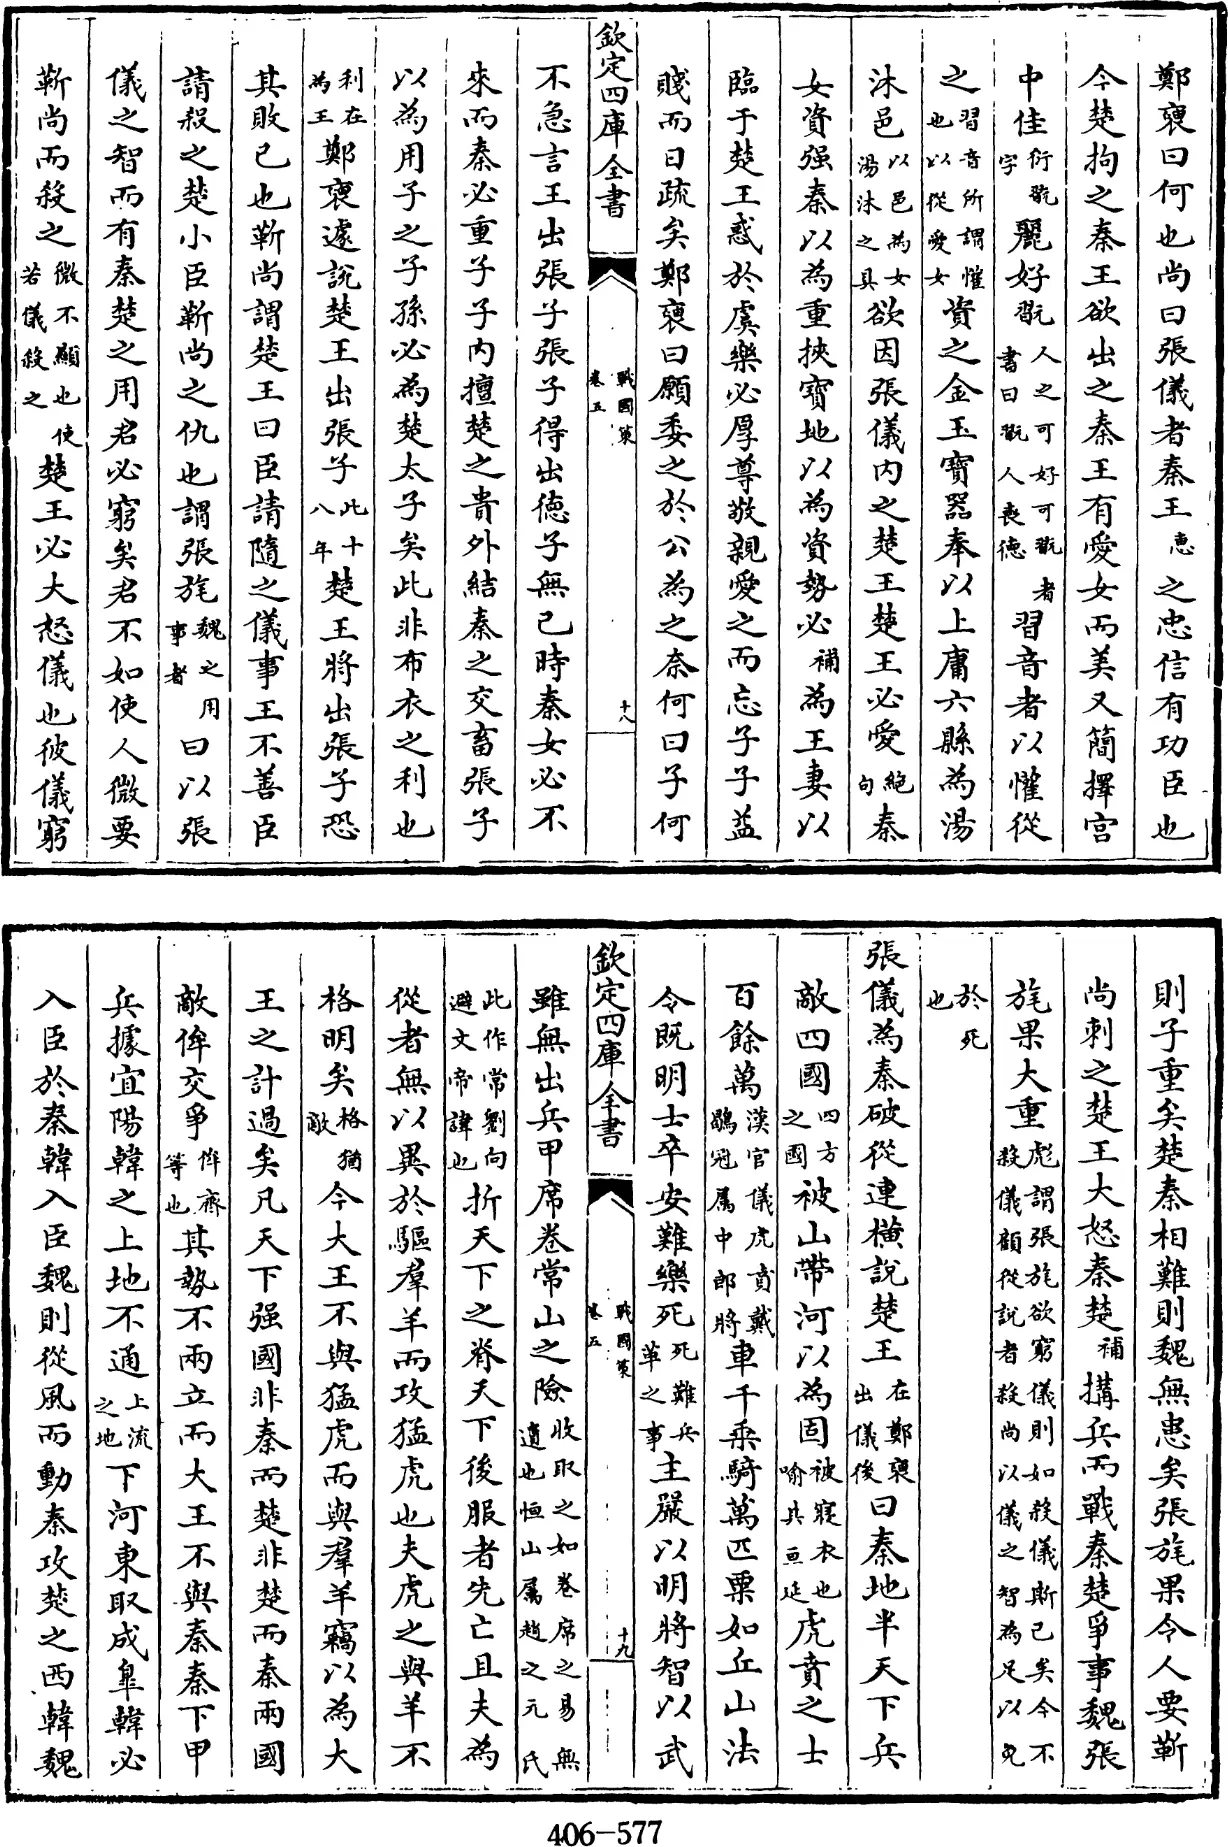 鄭褏曰何也尚曰張儀者秦王惠之忠信有功臣也
今楚拘之秦王欲出之秦王有愛女而美又簡擇宮
中佳衍翫字麗好翫人之可好可翫者書曰翫人喪德習音者以懽從
之習音所謂懽也以從愛女資之金玉寶器奉以上庸六縣為湯
沐邑以邑為女湯沐之具欲因張儀內之楚王楚王必愛絶句秦
女資强秦以為重挾寶地以為資勢必補為王妻以
臨于楚王惑於虞樂必厚尊敬親愛之而忘子子益
賤而日疏矣鄭褏曰願委之於公為之奈何曰子何
欽定四庫全書 戰國策卷五 十八
不急言王出張子張子得出德子無已時秦女必不
來而秦必重子子內擅楚之貴外結秦之交畜張子
以為用子之子孫必為楚太子矣此非布衣之利也
利在為王鄭褏遽說楚王出張子此十八年楚王將出張子恐
其敗已也靳尚謂楚王曰臣請隨之儀事王不善臣
請殺之楚小臣靳尚之仇也謂張旄魏之用事者曰以張
儀之智而有秦楚之用君必窮矣君不如使人微要
靳尚而殺之微不顯也使若儀殺之楚王必大怒儀也彼儀窮
則子重矣楚秦相難則魏無患矣張旄果令人要靳
尚刺之楚王大怒秦楚補搆兵而戰秦楚爭事魏張
旄果大重彪謂張旄欲窮儀則如殺儀斯已矣今不殺儀顧從說者殺尚以儀之智為足以免
於死也
張儀為秦破從連橫說楚王在鄭褏出儀後曰秦地半天下兵
敵四國四方之國被山帶河以為固被寢衣也喻其亘延虎賁之士
百餘萬漢官儀虎賁戴鶡冠属中郎將車千乘騎萬匹粟如丘山法
令既明士卒安難樂死死難兵革之事主嚴以明將智以武
欽定四庫全書 戰國策卷五 十九
雖無出兵甲席卷常山之險收取之如卷席之易無遺也恒山属趙之元氏
此作常劉向避文帝諱也折天下之脊天下後服者先亡且夫為
從者無以異於驅羣羊而攻猛虎也夫虎之與羊不
格明矣格猶敵今大王不與猛虎而與羣羊竊以為大
王之計過矣凡天下强國非秦而楚非楚而秦兩國
敵侔交爭侔齊等也其勢不兩立而大王不與秦秦下甲
兵據宜陽韓之上地不通上流之地下河東取成臯韓必
入臣於秦韓入臣魏則從風而動秦攻楚之西韓魏
406-577